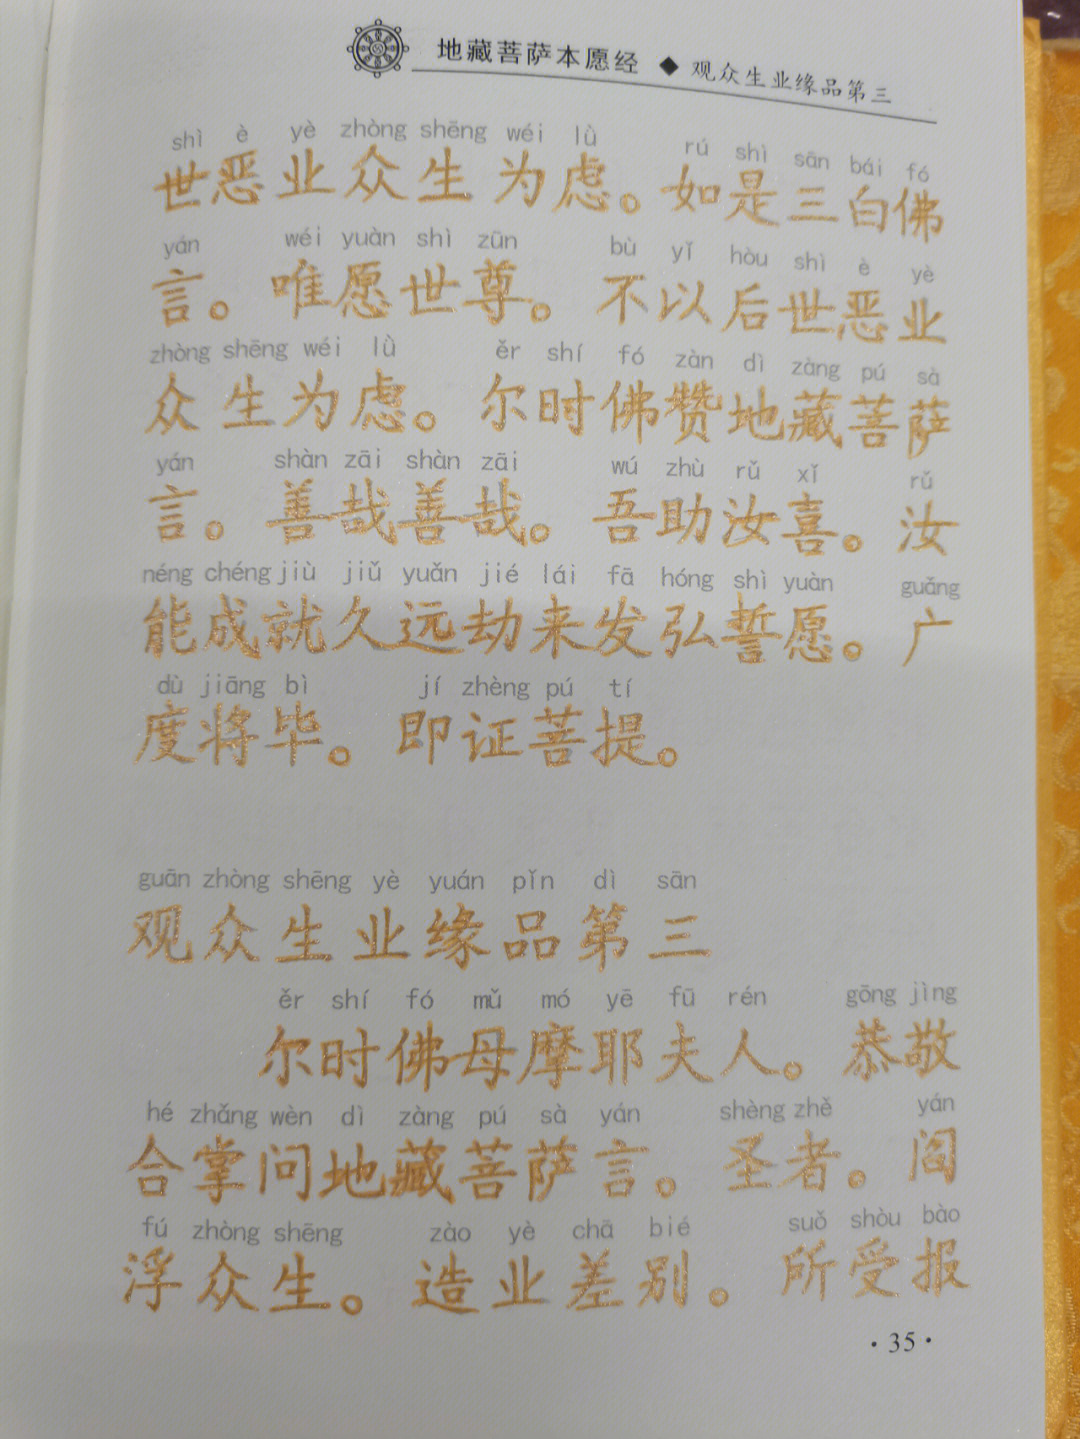 地藏菩萨本愿经 ◆ 观众生业缘品第三
shì è yè zhòng shēng wéi lǜ rú shì sān bái fó
世恶业众生为虑。如是三白佛
yán wéi yuàn shì zūn bù yǐ hòu shì è yè
言。唯愿世尊。不以后世恶业
zhòng shēng wéi lǜ ěr shí fó zàn dì zàng pú sà
众生为虑。尔时佛赞地藏菩萨
yán shàn zāi shàn zāi wú zhù rǔ xǐ rǔ
言。善哉善哉。吾助汝喜。汝
néng chéng jiù jiǔ yuǎn jié lái fā hóng shì yuàn guǎng
能成就久远劫来发弘誓愿。广
dù jiāng bì jí zhèng pú tí
度将毕。即证菩提。
guān zhòng shēng yè yuán pǐn dì sān
观众生业缘品第三
ěr shí fó mǔ mó yē fū rén gōng jìng
尔时佛母摩耶夫人。恭敬
hé zhǎng wèn dì zàng pú sà yán shèng zhě yán
合掌问地藏菩萨言。圣者。阎
fú zhòng shēng zào yè chā bié suǒ shòu bào
浮众生。造业差别。所受报
·35·